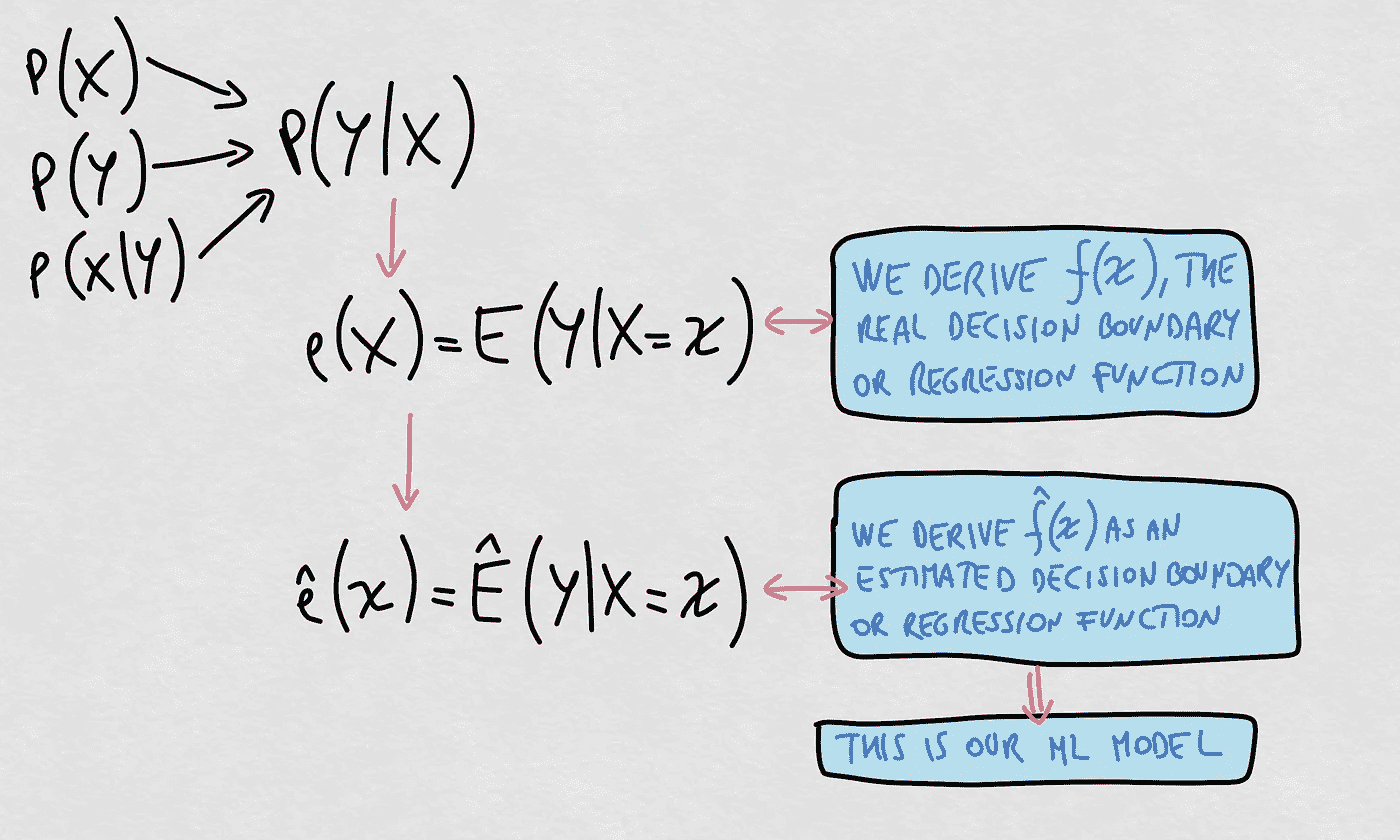 P(X)
P(Y)
P(X|Y)
P(Y|X)
e(X) = E(Y|X=x)
WE DERIVE f(x), THE
REAL DECISION BOUNDARY
OR REGRESSION FUNCTION
ê(x) = Ê(Y|X=x)
WE DERIVE f̂(x) AS AN
ESTIMATED DECISION BOUNDARY
OR REGRESSION FUNCTION
THIS IS OUR ML MODEL